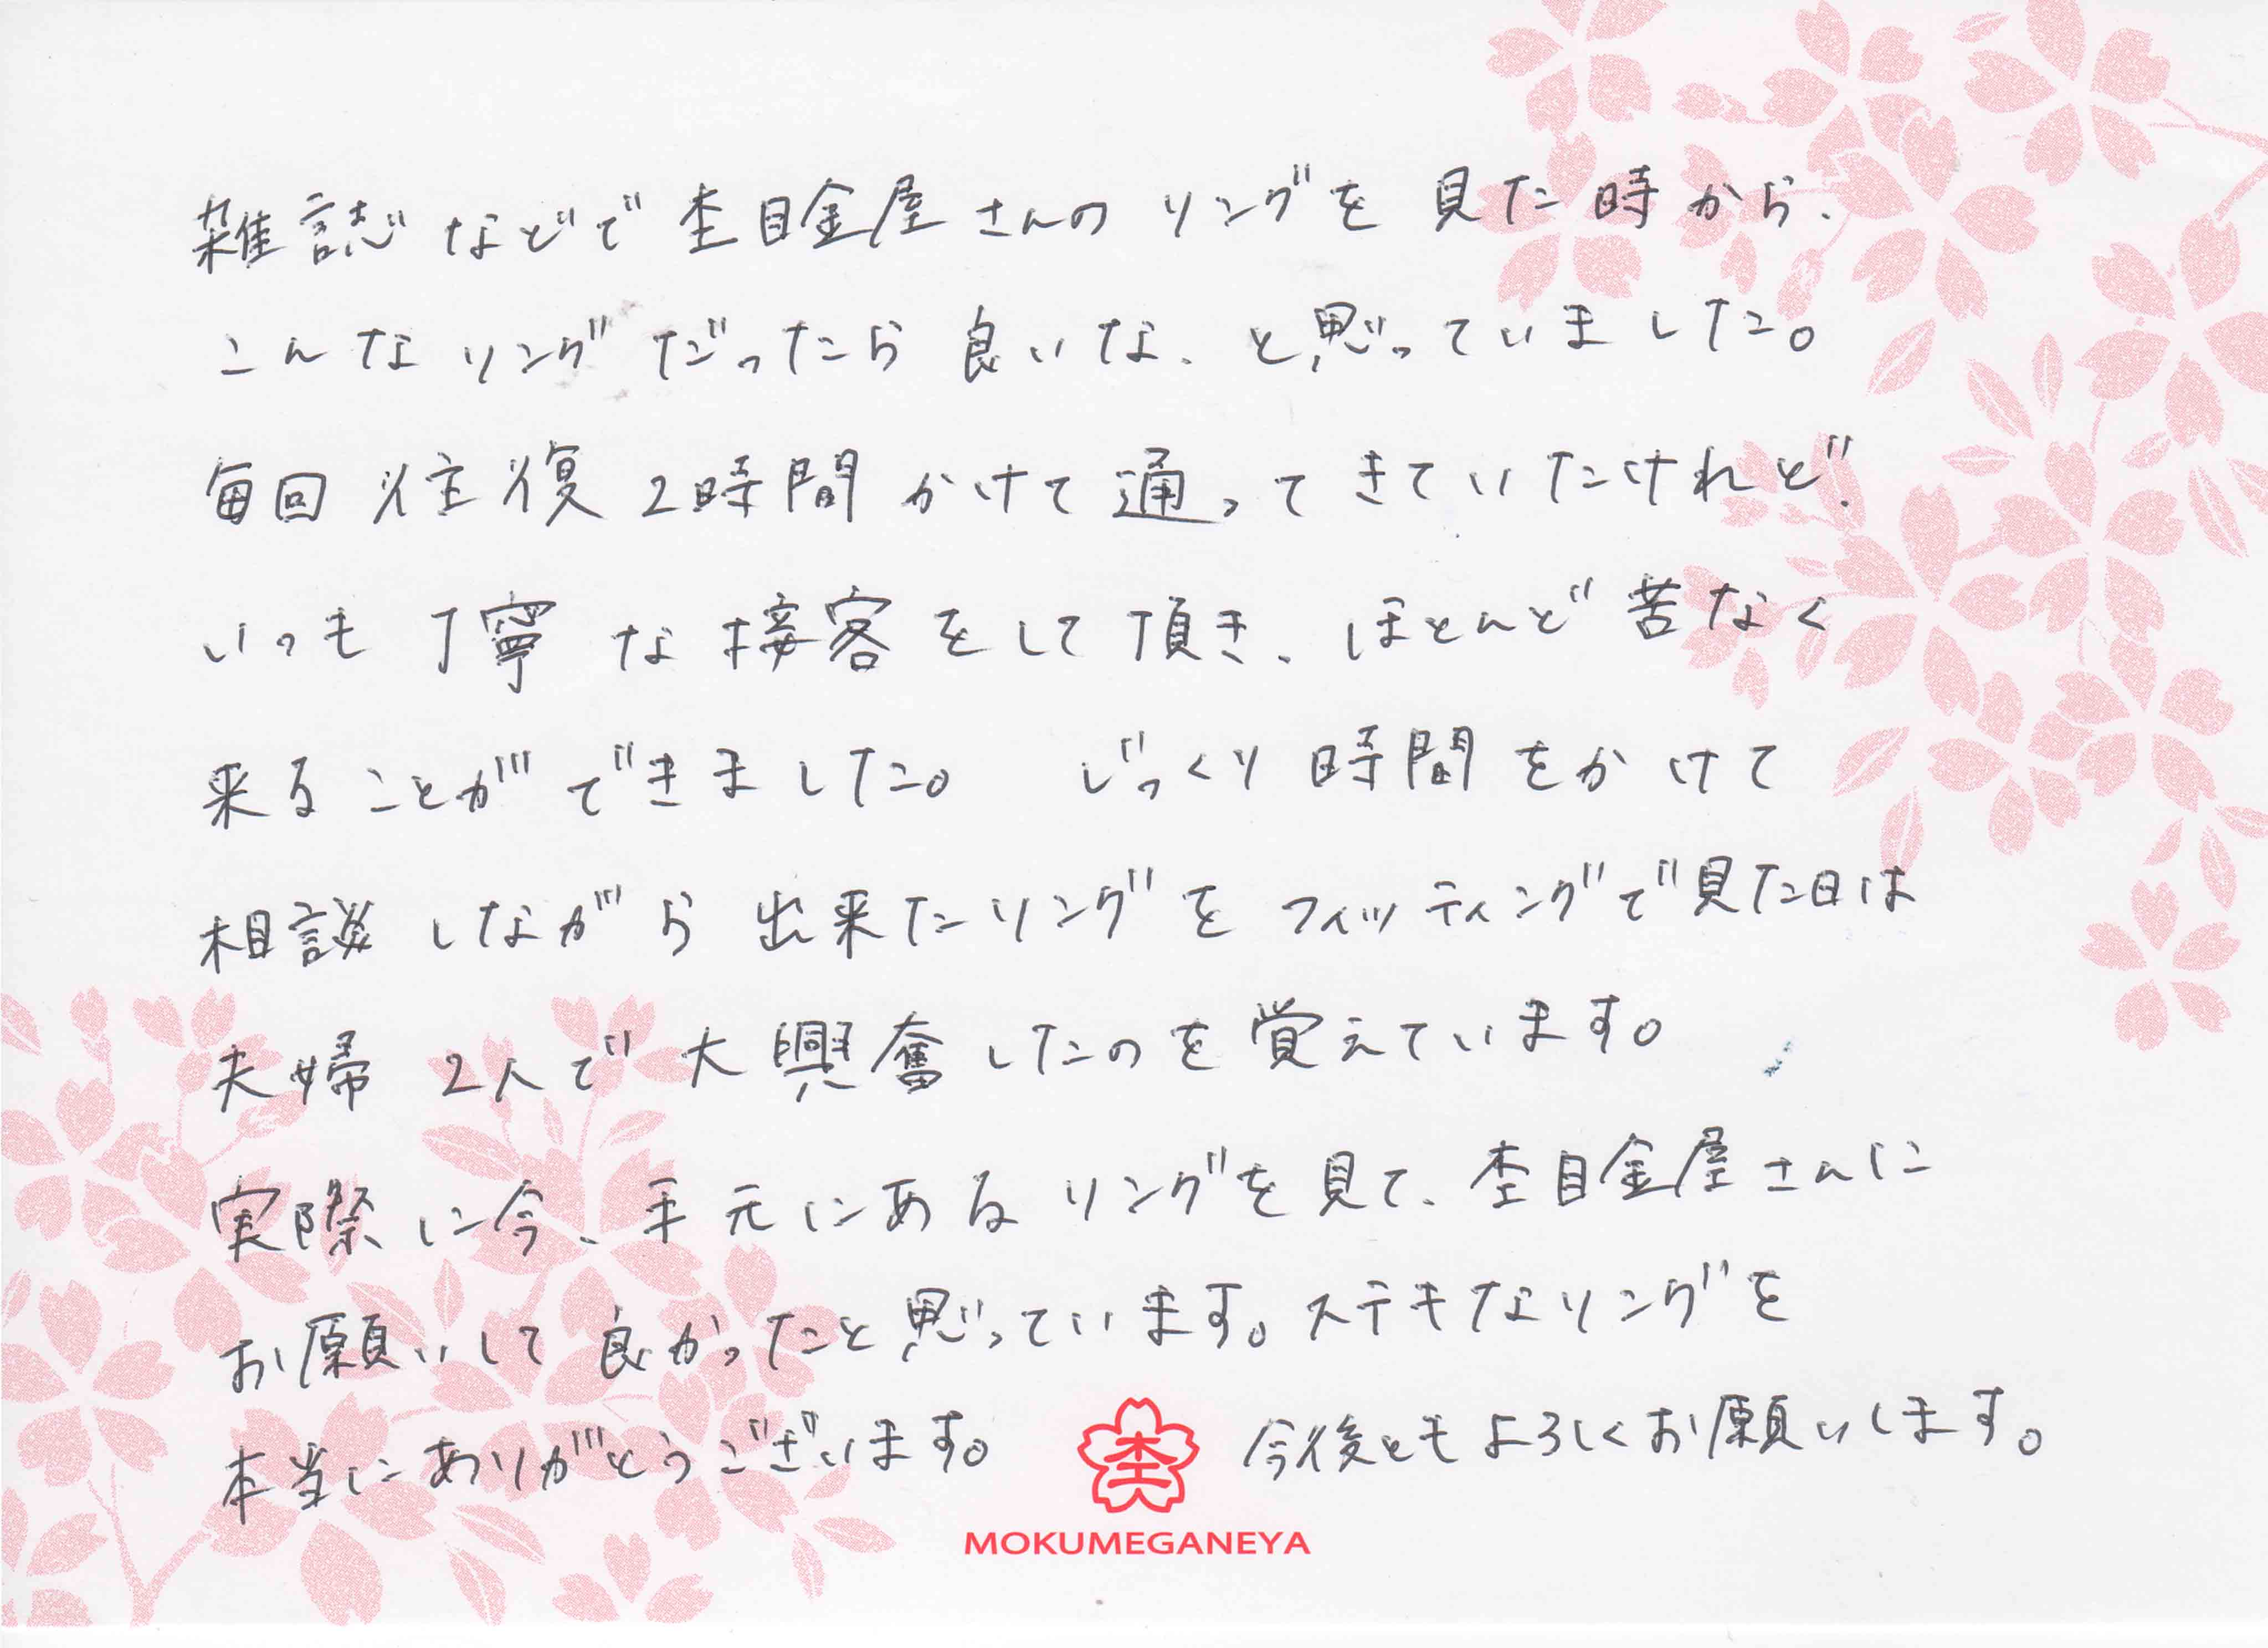 雑誌などで杢目金屋さんのリングを見た時から、
こんなリングだったら良いな、と思っていました。
毎回往復2時間かけて通ってきていたけれど、
いつも丁寧な接客をして頂き、ほとんど苦なく
来ることができました。 じっくり時間をかけて
相談しながら出来たリングをフィッティングで見た日は
夫婦2人で大興奮したのを覚えています。
実際に今、手元にあるリングを見て、杢目金屋さんに
お願いして良かったと思っています。ステキなリングを
本当にありがとうございます。 杢 今後ともよろしくお願いします。
MOKUMEGANEYA